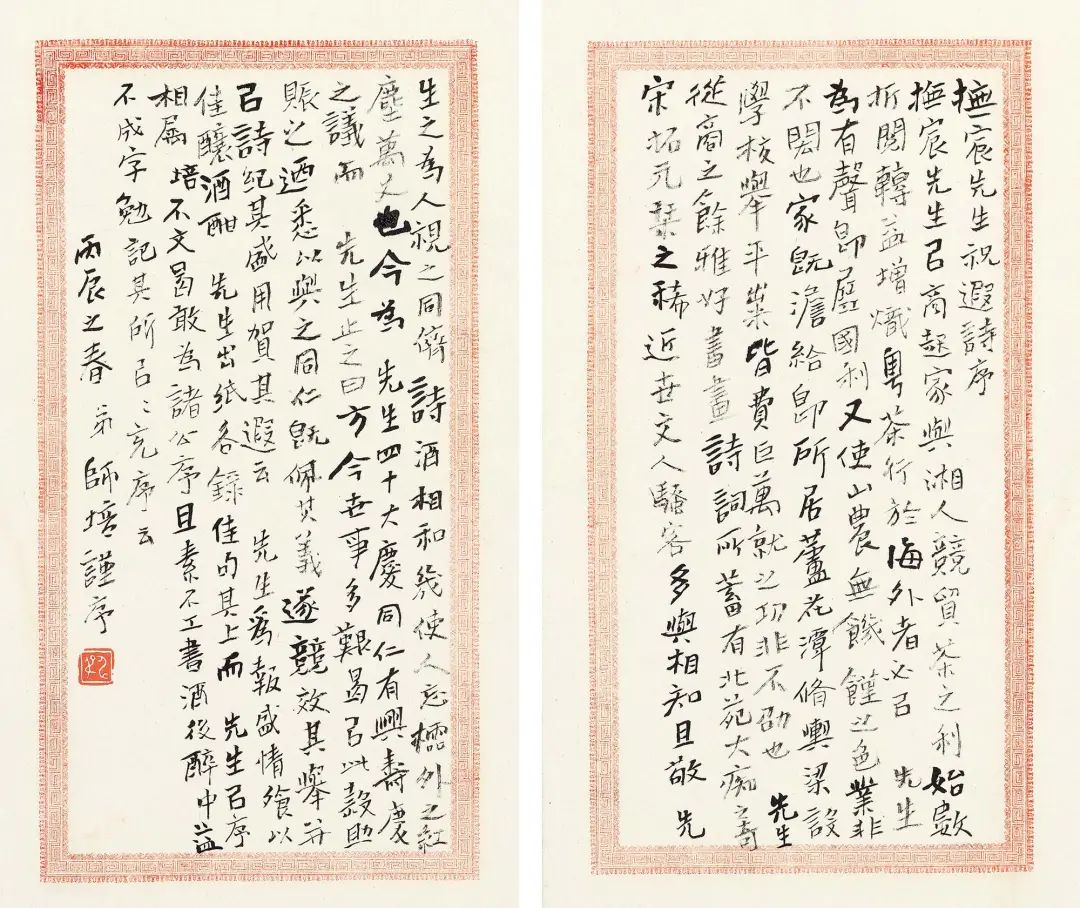 撫宸先生祝遐詩序
撫宸先生㠯商起家與湘人競貿茶之利始歉
折閱轉益增熾粵茶行於海外者必㠯 先生
為有聲即歷國利又使山農無饑饉之色業非
不閎也家既澹給即所居蘆花潭脩輿梁設
學校舉平糶皆費巨萬就之功非不劭也 先生
從商之餘雅好書畫詩詞所蓄有北苑大痴之奇
宋拓元槧之稀近世文人騷客多與相知且敬 先
生之為人視之同儕詩酒相和幾使人忘櫺外之紅
塵萬丈也今為 先生四十大慶同仁有興壽慶
之議而 先生止之曰方今世事多艱曷㠯此穀助
賑之迺悉以與之同仁既佩其義遂競效其舉并
㠯詩紀其盛用賀其遐云 先生為報盛情飨以
佳釀酒酣 先生出紙各錄佳句其上而 先生㠯序
相屬 培不文曷敢為諸公序且素不工書酒後醉中益
不成字勉記其所㠯㠯充序云
丙辰之春 弟師培謹序